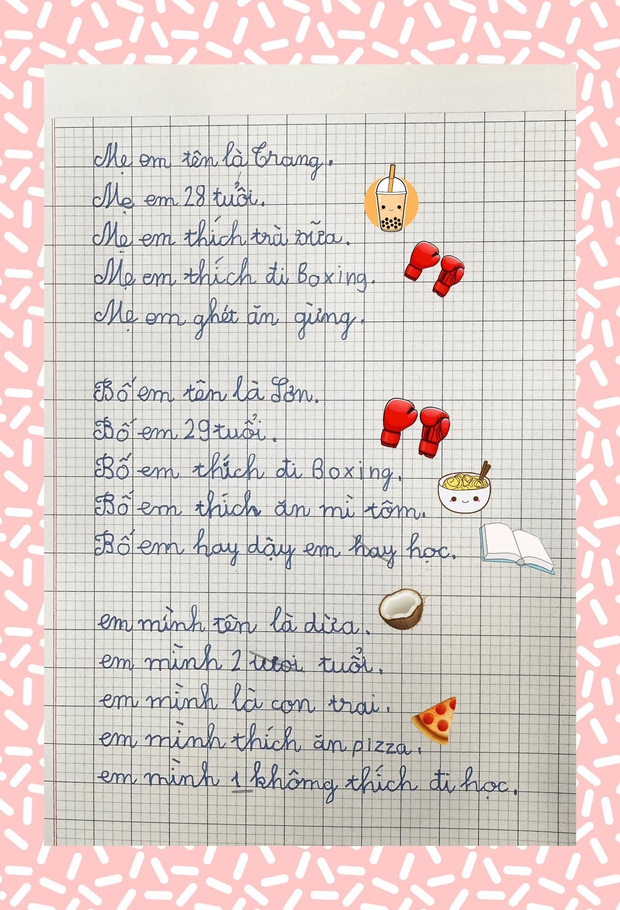 Mẹ em tên là Trang.
Mẹ em 28 tuổi.
Mẹ em thích trà sữa.
Mẹ em thích đi Boxing.
Mẹ em ghét ăn gừng.
Bố em tên là Sơn.
Bố em 29 tuổi.
Bố em thích đi Boxing.
Bố em thích ăn mì tôm.
Bố em hay dậy em hay học.
em mình tên là dừa.
em mình 2 tuổi.
em mình là con trai.
em mình thích ăn pizza.
em mình 1 không thích đi học.